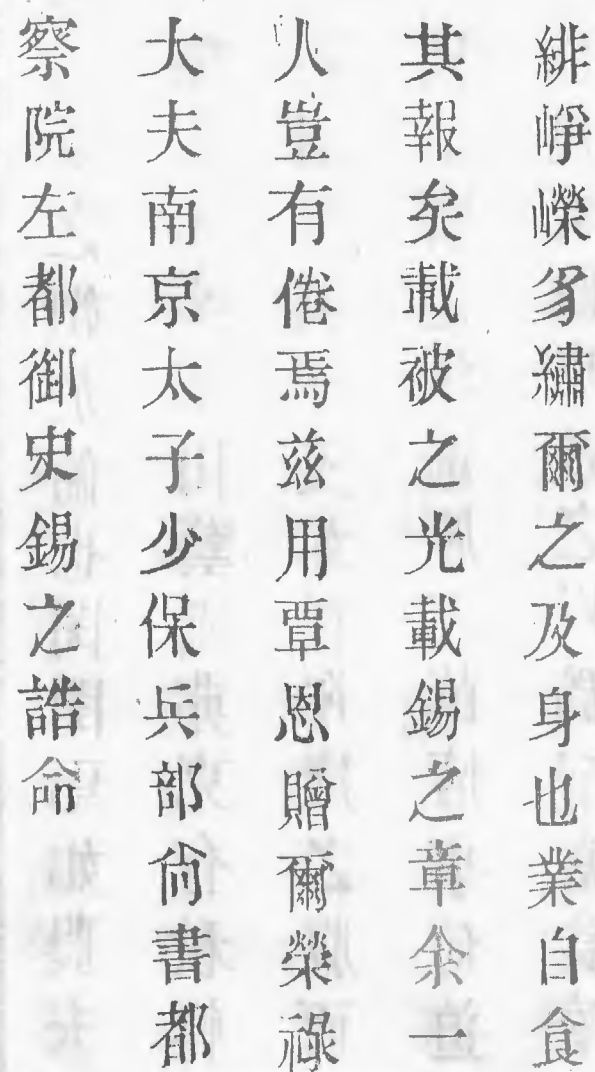 緋崢嶸豸繡爾之及身也業自食
其報矣載被之光載錫之章余一
人豈有倦焉茲用覃恩贈爾榮祿
大夫南京太子少保兵部尙書都
察院左都御史錫之誥命